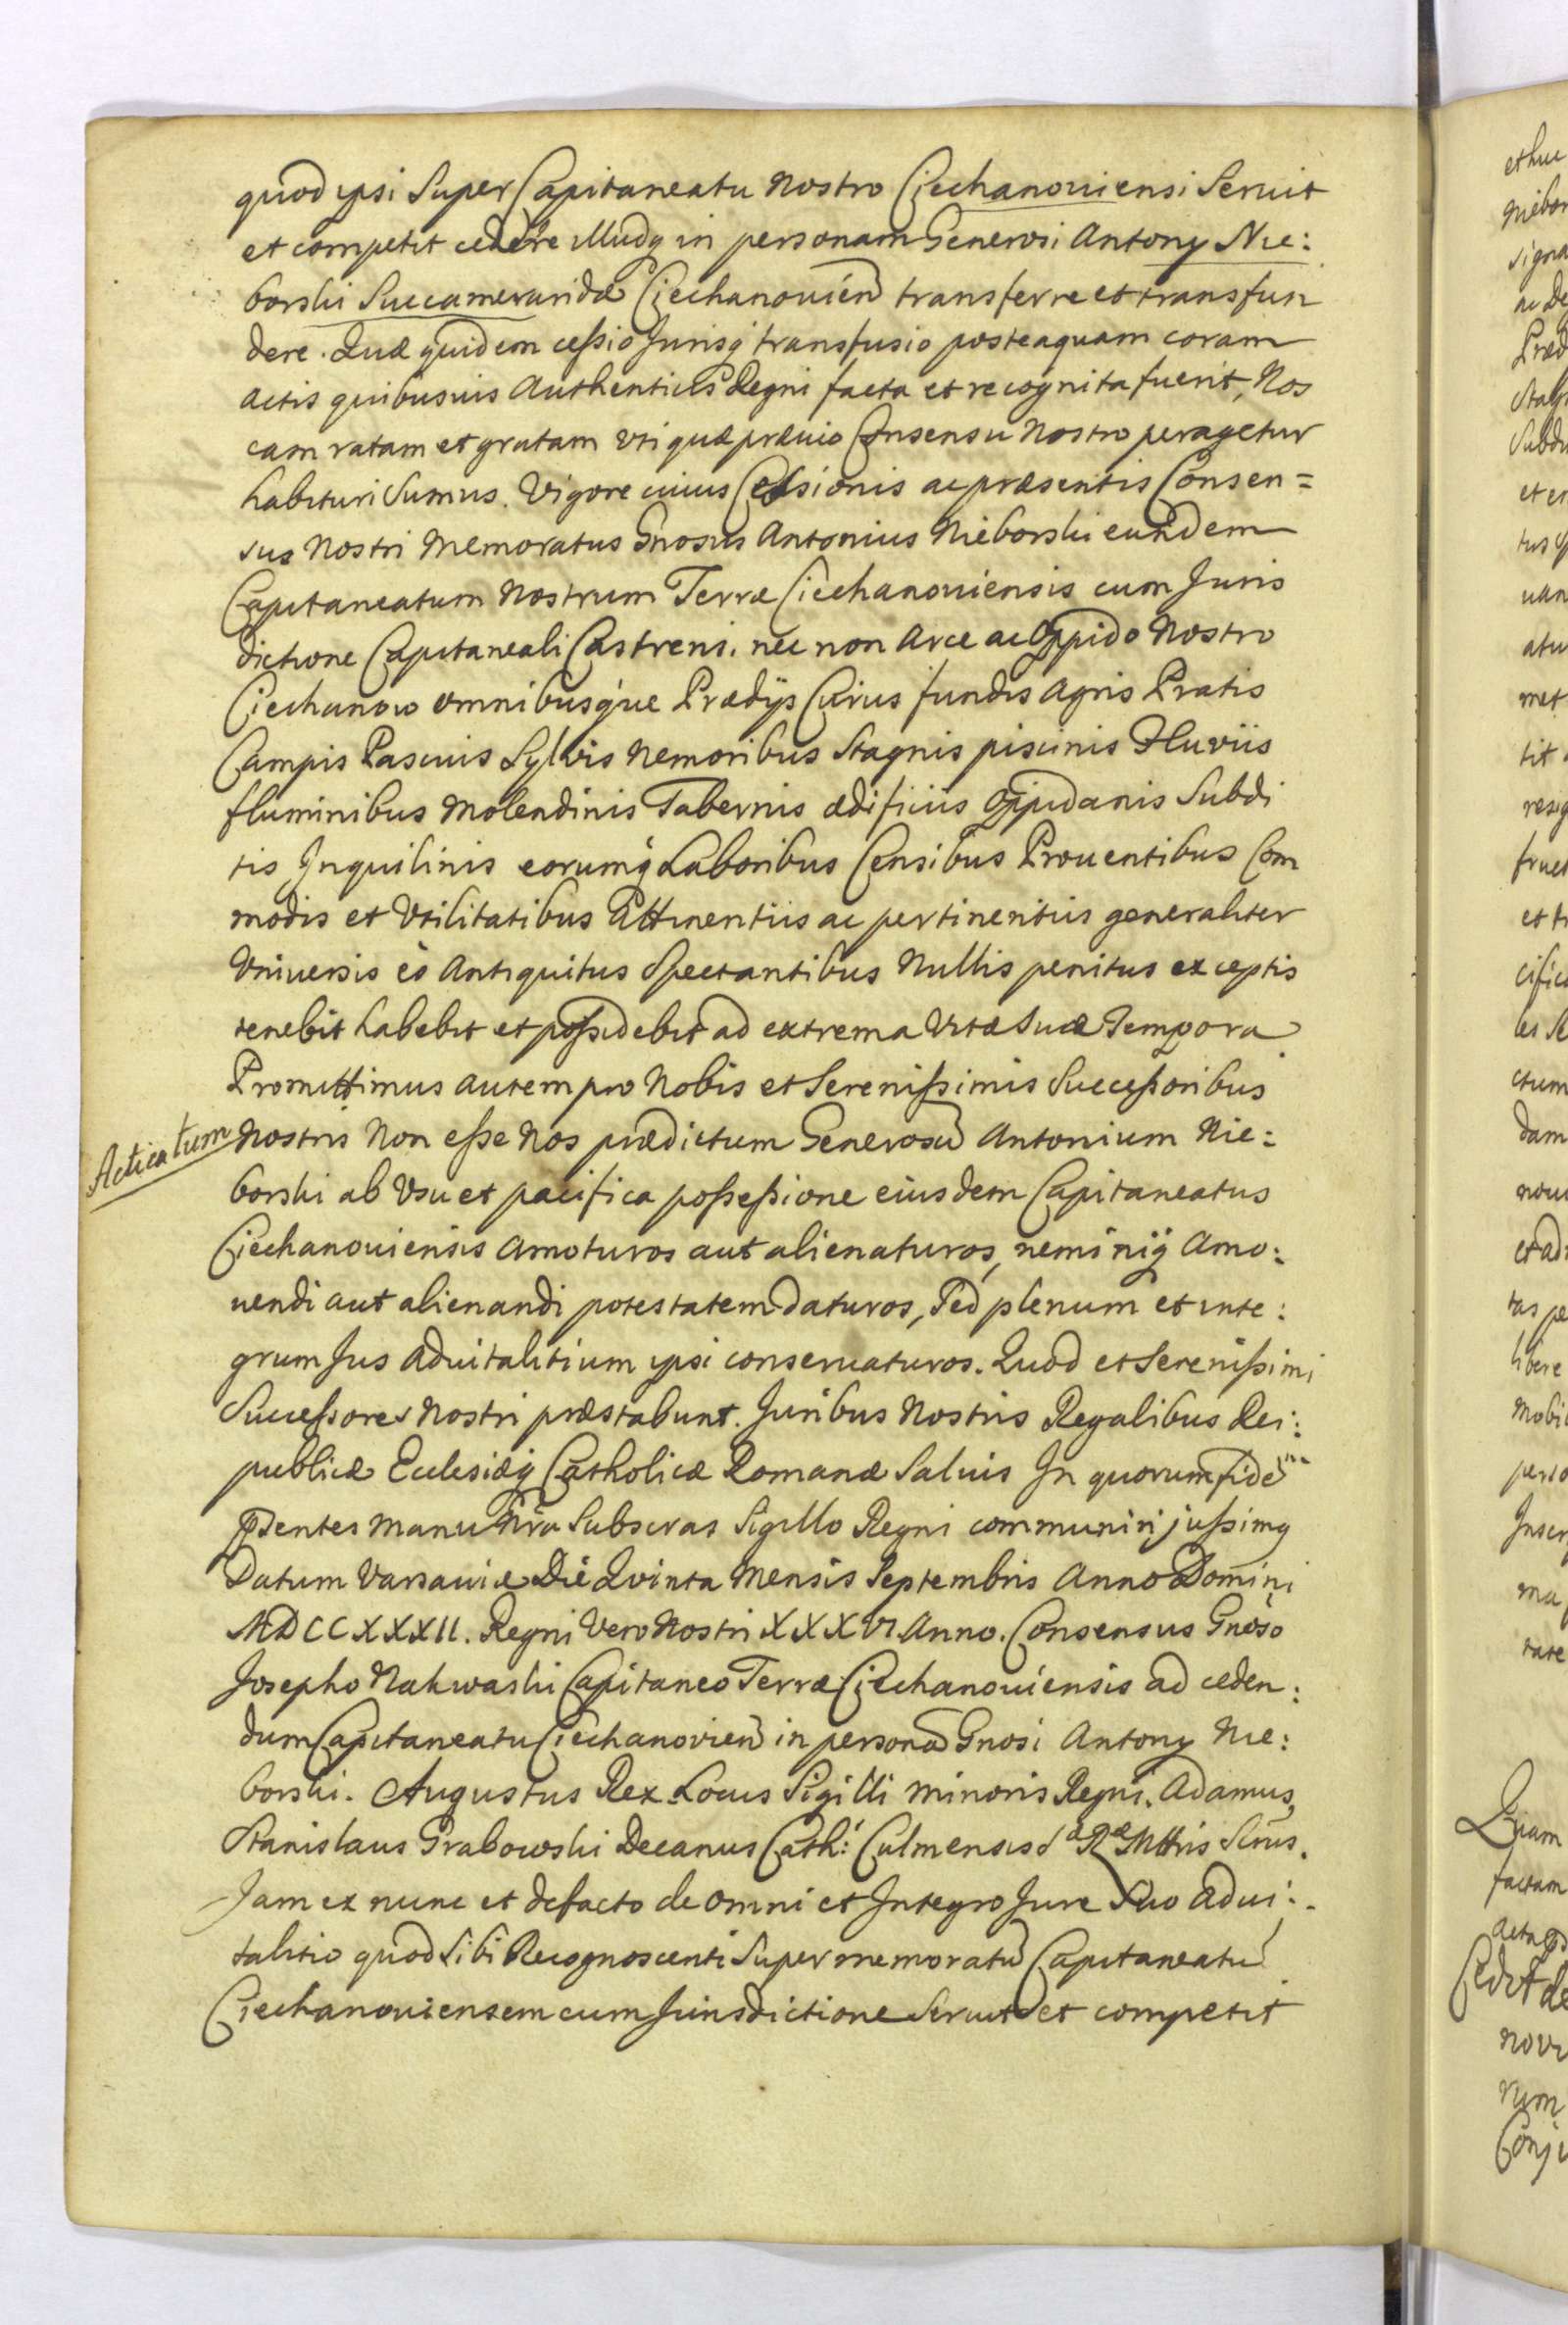 quod ipsi Super Capitaneatu Nostro Ciechanoviensi Servit
et competit cedere illudq in personam Generosi Antony Nie:
borski Succamerarida Ciechanovien transferre et transfun
dere. Quæ quidem cessio Jurisq transfusio posteaquam coram
actis quibusvis Authenticis Regni facta et recognita fuerit, Nos
eam ratam et gratam uti quæ prævio Consensu Nostro peragetur
habituri Sumus. Vigore cuius Cessionis ac præsentis Consen=
sus Nostri Memoratus Gnosus Antonius Nieborski eundem
Capitaneatum Nostrum Terræ Ciechanoviensis cum Juris
dictione Capitaneali Castrensi. nec non Arce ac Oppido Nostro
Ciechanow omnibusque Prædijs Curijs fundis Agris Pratis
Campis Pascuis Sylvis Nemoribus Stagnis piscinis Fluviis
fluminibus Molendinis Tabernis ædificiis Oppidanis Subdi
tis Inquilinis eorumq Laboribus Censibus Proventibus Com
modis et Utilitatibus Attinentiis ac pertinentiis generaliter
Universis eò Antiquitus Spectantibus Nullis penitus exceptis
tenebit habebit et possidebit ad extrema Vitæ Suæ Tempora
Promittimus autem pro Nobis et Serenissimis Successoribus
Acticatum
Nostris Non esse Nos prædictum Generosu Antonium Nie:
borski ab Usu et pacifica possessione eiusdem Capitaneatus
Ciechanoviensis Amoturos aut alienaturos, neminiq Amo:
vendi aut alienandi potestatem daturos, Sed plenum et inte:
grum Jus Advitalitium ipsi conservaturos. Quod et Serenissimi
Successores Nostri præstabunt. Juribus Nostris Regalibus Rei:
publicæ Ecclesiæq Catholicæ Romanæ Salvis In quorum fide
ppsentes Manu Nra Subscras Sigillo Regni communiri jussimq
Datum Varsaviæ Die Quinta Mensis Septembris Anno Domini
MDCCXXXII. Regni Vero Nostri XXXVI Anno. Consensus Gnoso
Josepho Nakwaski Capitaneo Terræ Ciechanoviensis ad ceden:
dum Capitaneatu Ciechanovien in persona Gnosi Antony Nie:
borski. Augustus Rex. Locus Sigilli Minoris Regni. Adamus
Stanislaus Grabowski Decanus Cath: Culmensis Sæ Ræ Mttis Scrius.
Jam ex nunc et defacto de omni et Integro Jure Suo Advi:
talitio quod Sibi Recognoscenti Super memoratu Capitaneatu
Ciechanoviensem cum Jurisdictione Servit et competit